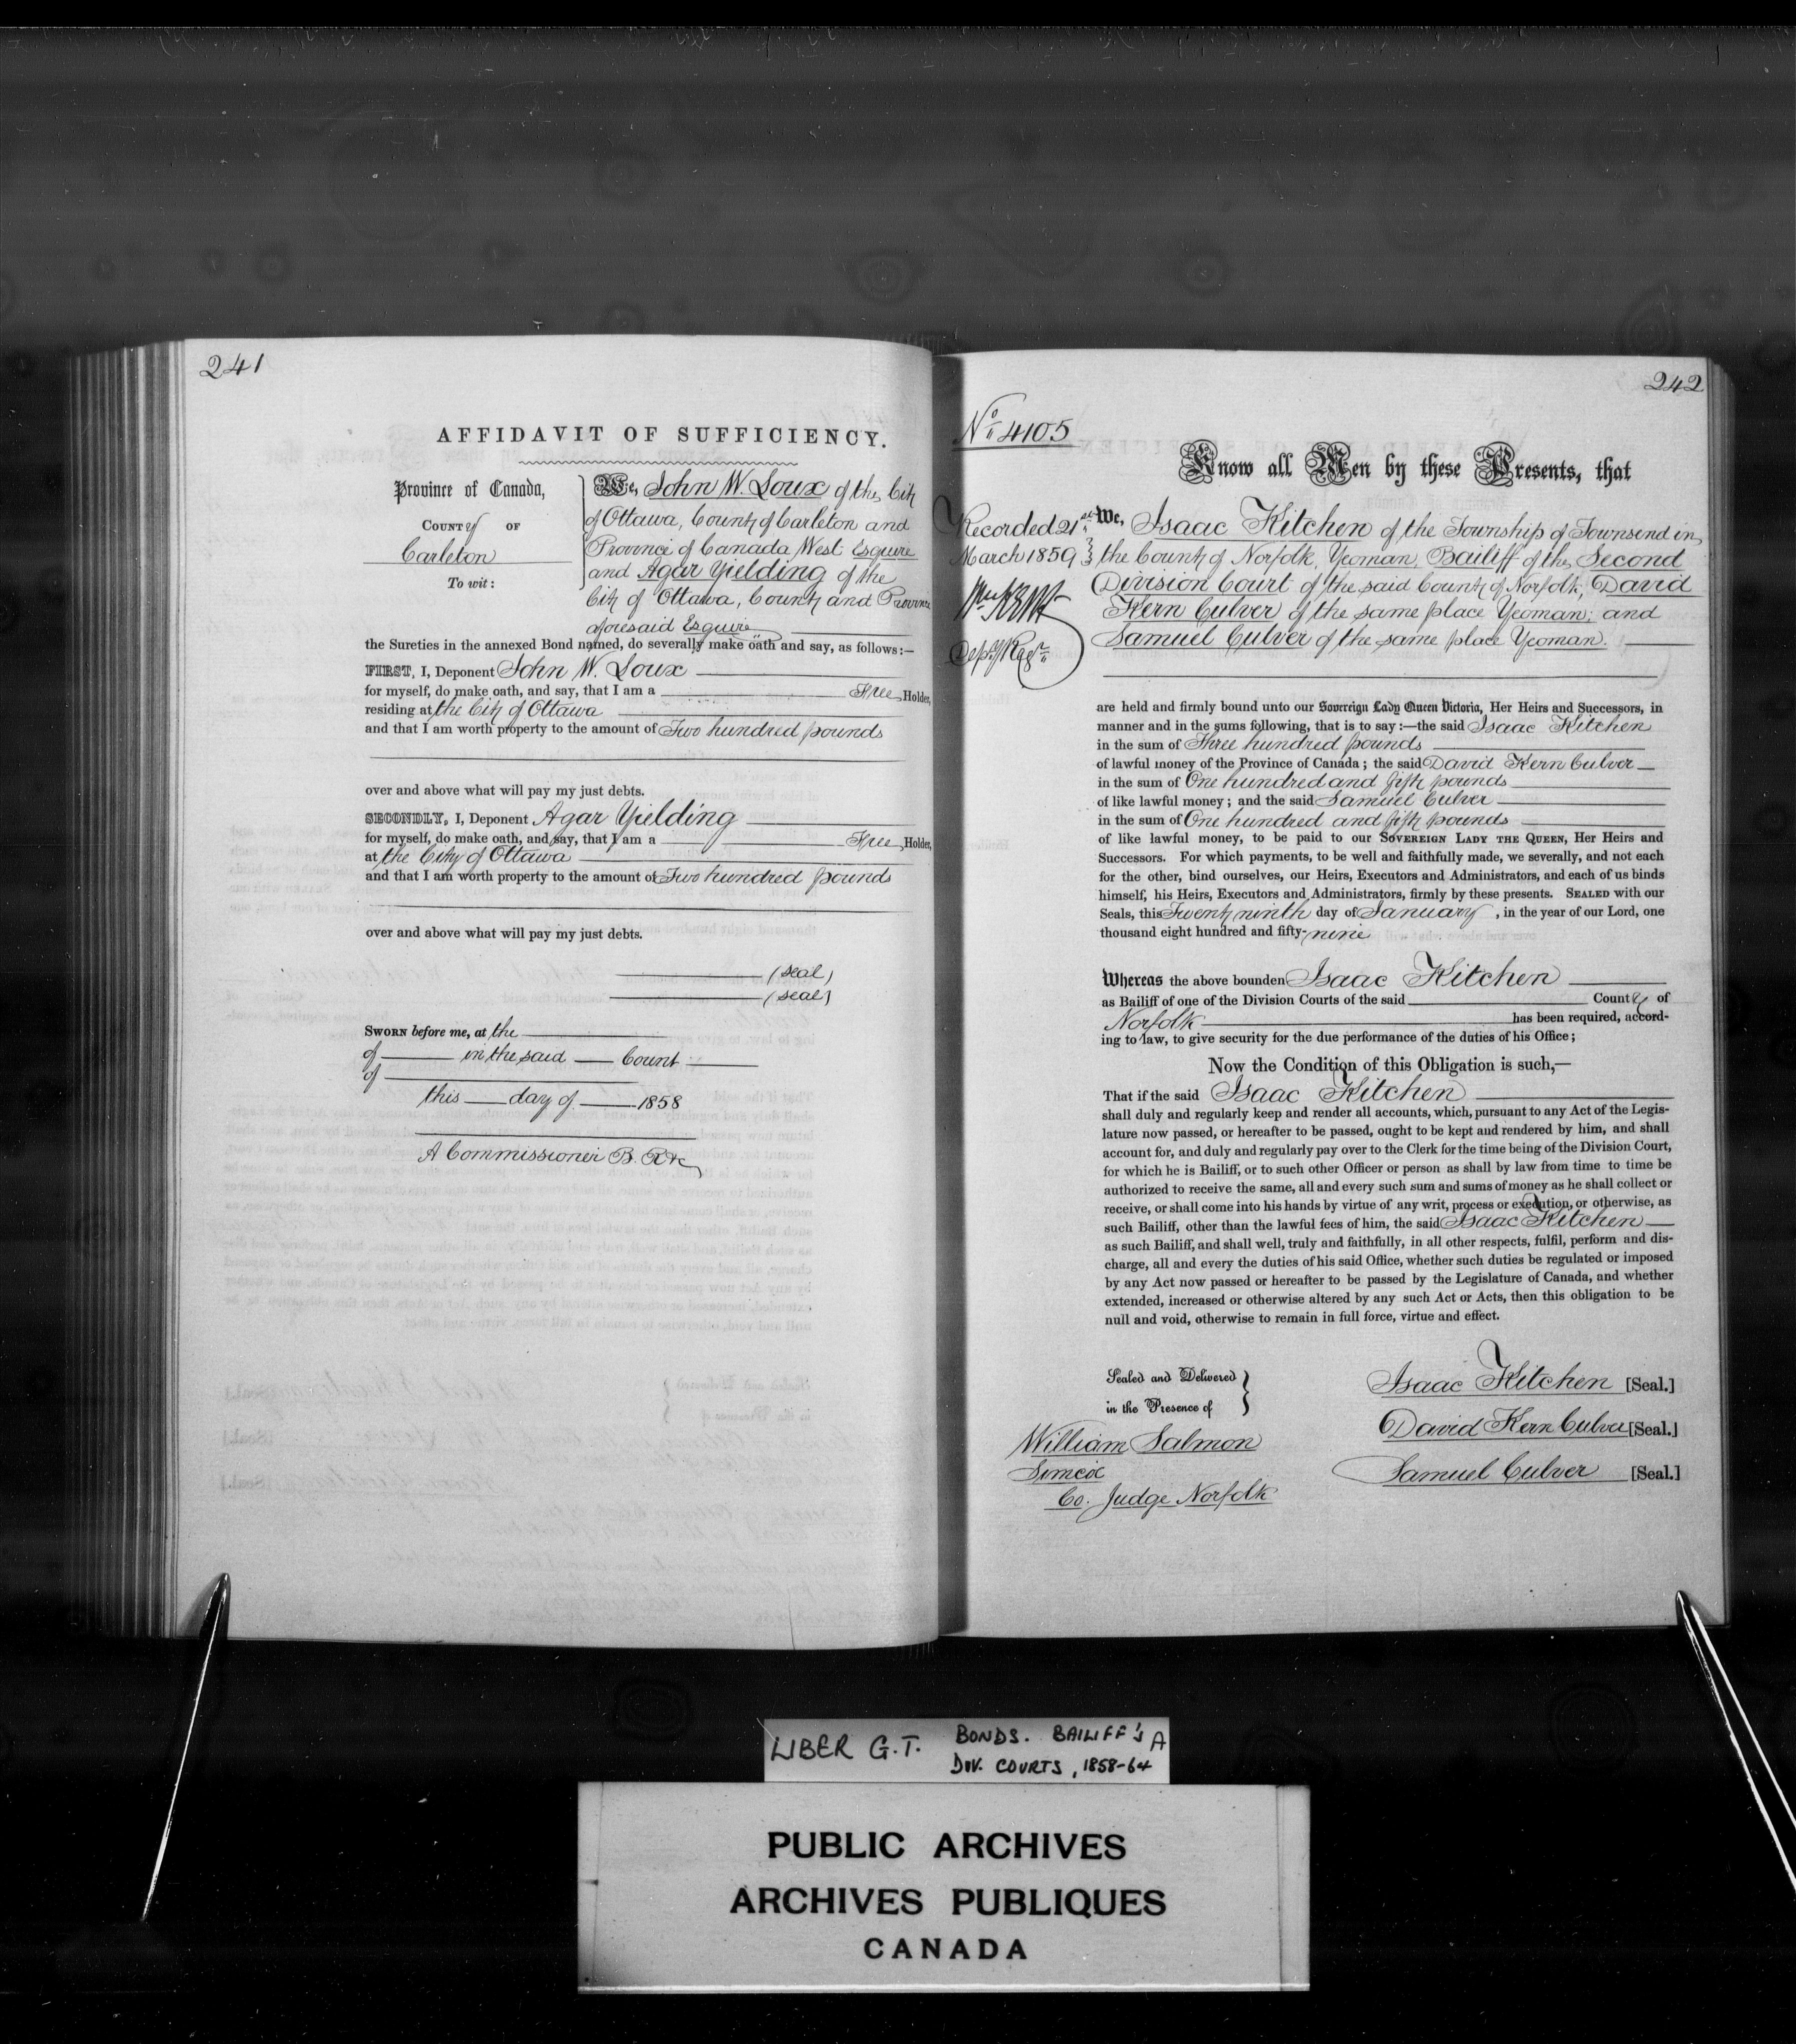 241
AFFIDAVIT OF SUFFICIENCY.
Province of Canada,
County of
Carleton
To wit:
We, John W. Loux of the City
of Ottawa, County of Carleton and
Province of Canada West Esquire
and Agar Yielding of the
City of Ottawa, County and Province
aforesaid Esquire
the Sureties in the annexed Bond named, do severally make oath and say, as follows:—
FIRST, I, Deponent John W. Loux
for myself, do make oath, and say, that I am a Free Holder,
residing at the City of Ottawa
and that I am worth property to the amount of Two hundred pounds
over and above what will pay my just debts.
SECONDLY, I, Deponent Agar Yielding
for myself, do make oath, and say, that I am a Free Holder,
at the City of Ottawa
and that I am worth property to the amount of Two hundred pounds
over and above what will pay my just debts.
(seal)
(seal)
Sworn before me, at the
of in the said Count
of
this day of 1858
A Commissioner B. R &c
242
No 4105
Know all Men by these Presents, that
Recorded 21st
March 1859
Depy Regr
We, Isaac Kitchen of the Township of Townsend in
the County of Norfolk, Yeoman, Bailiff of the Second
Division Court of the said County of Norfolk, David
Kern Culver of the same place Yeoman; and
Samuel Culver of the same place Yeoman.
are held and firmly bound unto our Sovereign Lady Queen Victoria, Her Heirs and Successors, in
manner and in the sums following, that is to say:—the said Isaac Kitchen
in the sum of Three hundred pounds
of lawful money of the Province of Canada; the said David Kern Culver
in the sum of One hundred and fifty pounds
of like lawful money; and the said Samuel Culver
in the sum of One hundred and fifty pounds
of like lawful money, to be paid to our Sovereign Lady the Queen, Her Heirs and
Successors. For which payments, to be well and faithfully made, we severally, and not each
for the other, bind ourselves, our Heirs, Executors and Administrators, and each of us binds
himself, his Heirs, Executors and Administrators, firmly by these presents. Sealed with our
Seals, this Twenty ninth day of January, in the year of our Lord, one
thousand eight hundred and fifty-nine
Whereas the above bounden Isaac Kitchen
as Bailiff of one of the Division Courts of the said County of
Norfolk has been required, accord-
ing to law, to give security for the due performance of the duties of his Office;
Now the Condition of this Obligation is such,—
That if the said Isaac Kitchen
shall duly and regularly keep and render all accounts, which, pursuant to any Act of the Legis-
lature now passed, or hereafter to be passed, ought to be kept and rendered by him, and shall
account for, and duly and regularly pay over to the Clerk for the time being of the Division Court,
for which he is Bailiff, or to such other Officer or person as shall by law from time to time be
authorized to receive the same, all and every such sum and sums of money as he shall collect or
receive, or shall come into his hands by virtue of any writ, process or execution, or otherwise, as
such Bailiff, other than the lawful fees of him, the said Isaac Kitchen
as such Bailiff, and shall well, truly and faithfully, in all other respects, fulfil, perform and dis-
charge, all and every the duties of his said Office, whether such duties be regulated or imposed
by any Act now passed or hereafter to be passed by the Legislature of Canada, and whether
extended, increased or otherwise altered by any such Act or Acts, then this obligation to be
null and void, otherwise to remain in full force, virtue and effect.
Sealed and Delivered
in the Presence of
William Salmon
Simcoe
Co. Judge Norfolk
Isaac Kitchen [Seal.]
David Kern Culver [Seal.]
Samuel Culver [Seal.]
LIBER G.T. BONDS. BAILIFF'S A
DIV. COURTS, 1858-64
PUBLIC ARCHIVES
ARCHIVES PUBLIQUES
CANADA